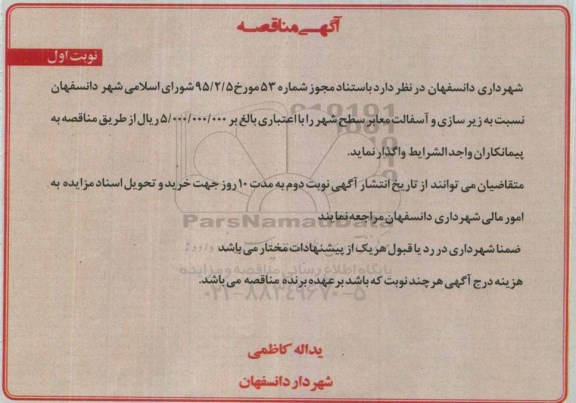 آگهی مناقصه
نوبت اول
شهرداری دانسفهان در نظر دارد باستناد مجوز شماره ۵۳ مورخ ۹۵/۲/۵ شورای اسلامی شهر دانسفهان
نسبت به زیر سازی و آسفالت معابر سطح شهر را با اعتباری بالغ بر ۵/۰۰۰/۰۰۰/۰۰۰ ریال از طریق مناقصه به
پیمانکاران واجد الشرایط واگذار نماید.
متقاضیان می توانند از تاریخ انتشار آگهی نوبت دوم به مدت ۱۰ روز جهت خرید و تحویل اسناد مزایده به
امور مالی شهرداری دانسفهان مراجعه نمایند
ParsNamadData
ضمنا شهرداری در رد یا قبول هر یک از پیشنهادات مختار می باشد
پایگاه اطلاع رسانی مناقصه و مزایده
هزینه درج آگهی هر چند نوبت که باشد بر عهده برنده مناقصه می باشد.
۰۲۱-۸۸۳۴۹۶۷۰-۵
یداله کاظمی
شهردار دانسفهان